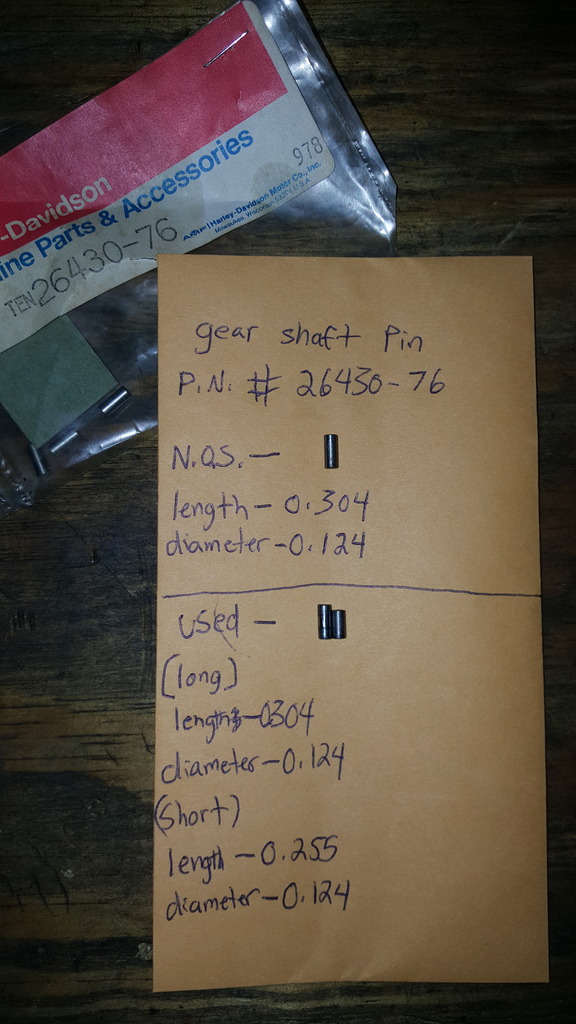 -Davidson
ine Parts & Accessories
978
AMF/Harley-Davidson Motor Co., Inc.
Milwaukee, Wisconsin 53201 U.S.A.
TEN 26430-76
gear shaft Pin
P.N. # 26430-76
N.O.S. —
length - 0.304
diameter - 0.124
used —
[long]
length - 0304
diameter - 0.124
(short)
length - 0.255
diameter - 0.124